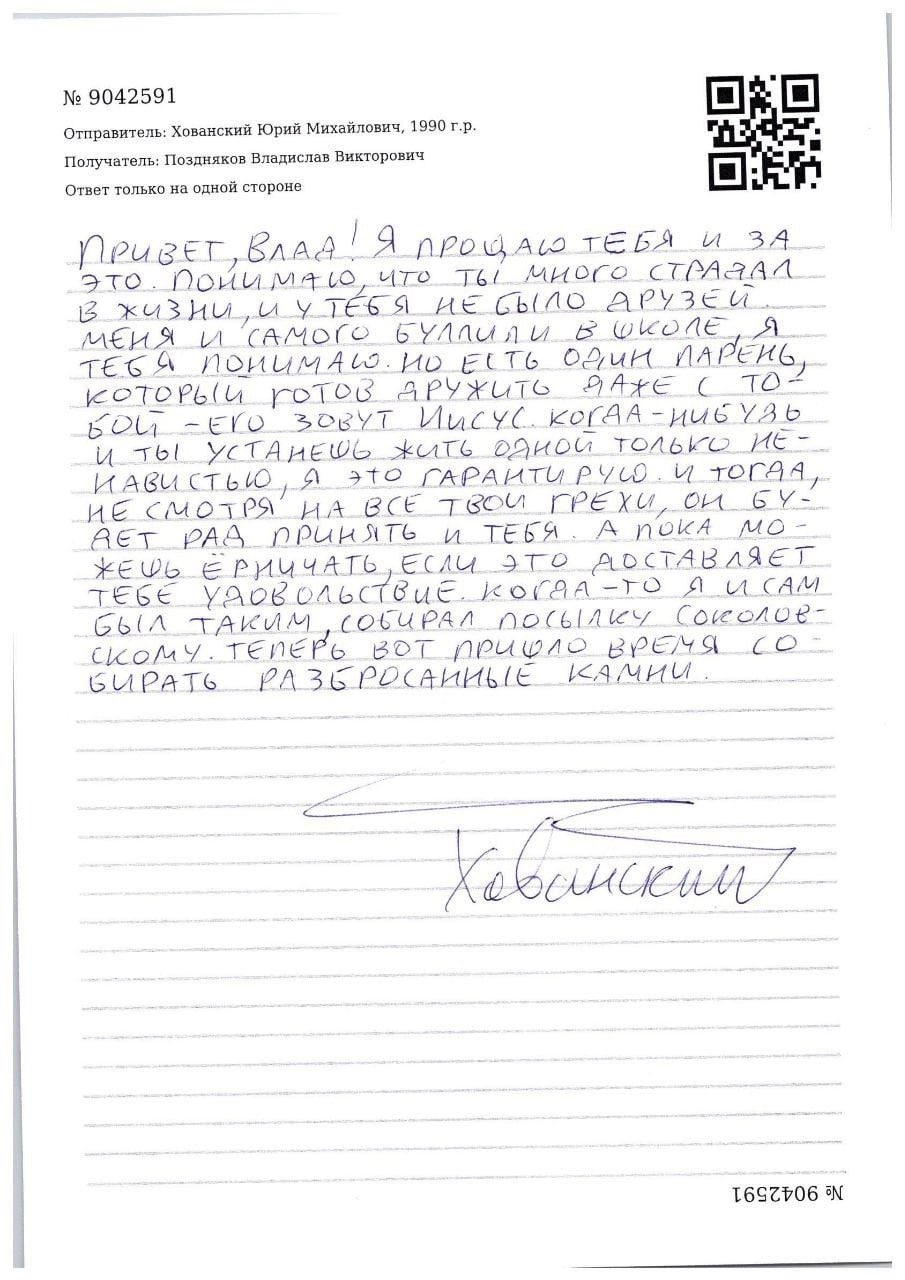 № 9042591
Отправитель: Хованский Юрий Михайлович, 1990 г.р.
Получатель: Поздняков Владислав Викторович
Ответ только на одной стороне
ПРИВЕТ, ВЛАД! Я ПРОЩАЮ ТЕБЯ И ЗА
ЭТО. ПОНИМАЮ, ЧТО ТЫ МНОГО СТРАДАЛ
В ЖИЗНИ, И У ТЕБЯ НЕ БЫЛО ДРУЗЕЙ.
МЕНЯ И САМОГО БУЛЛИЛИ В ШКОЛЕ, Я
ТЕБЯ ПОНИМАЮ. НО ЕСТЬ ОДИН ПАРЕНЬ,
КОТОРЫЙ ГОТОВ ДРУЖИТЬ ДАЖЕ С ТО-
БОЙ - ЕГО ЗОВУТ ИИСУС. КОГДА-НИБУДЬ
И ТЫ УСТАНЕШЬ ЖИТЬ ОДНОЙ ТОЛЬКО НЕ-
НАВИСТЬЮ, Я ЭТО ГАРАНТИРУЮ. И ТОГДА,
НЕ СМОТРЯ НА ВСЕ ТВОИ ГРЕХИ, ОН БУ-
ДЕТ РАД ПРИНЯТЬ И ТЕБЯ. А ПОКА МО-
ЖЕШЬ ЁРНИЧАТЬ, ЕСЛИ ЭТО ДОСТАВЛЯЕТ
ТЕБЕ УДОВОЛЬСТВИЕ. КОГДА-ТО Я И САМ
БЫЛ ТАКИМ, СОБИРАЛ ПОСЫЛКУ СОКОЛОВ-
СКОМУ. ТЕПЕРЬ ВОТ ПРИШЛО ВРЕМЯ СО-
БИРАТЬ РАЗБРОСАННЫЕ КАМНИ.
Хованский
№ 9042591